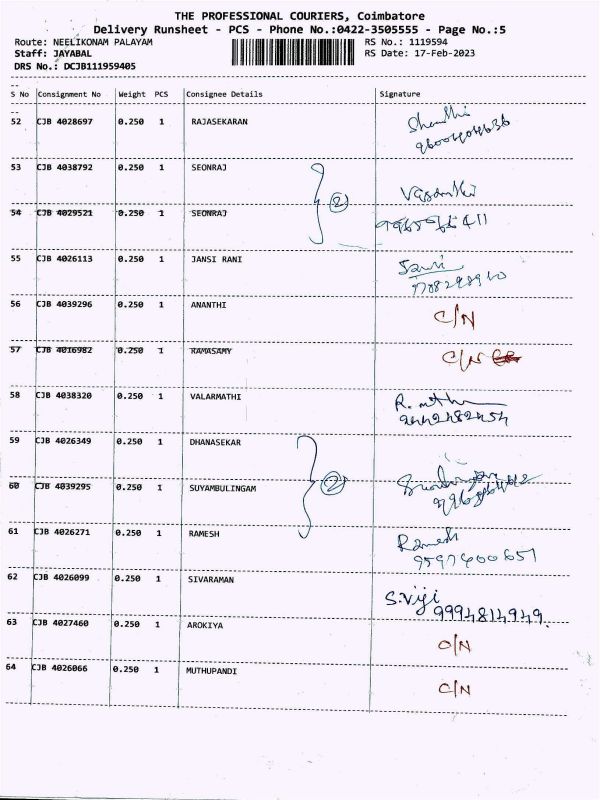 THE PROFESSIONAL COURIERS, Coimbatore
Delivery Runsheet - PCS - Phone No.:0422-3505555 - Page No.:5
Route: NEELIKONAM PALAYAM RS No.: 1119594
Staff: JAYABAL RS Date: 17-Feb-2023
DRS No.: DCJB111959405
S No Consignment No Weight PCS Consignee Details Signature
52 CJB 4028697 0.250 1 RAJASEKARAN
53 CJB 4038792 0.250 1 SEONRAJ
2
54 CJB 4029521 0.250 1 SEONRAJ
55 CJB 4026113 0.250 1 JANSI RANI
56 CJB 4039296 0.250 1 ANANTHI C/N
57 CJB 4016982 0.250 1 RAMASAMY C/N
58 CJB 4038320 0.250 1 VALARMATHI
59 CJB 4026349 0.250 1 DHANASEKAR
60 CJB 4039295 0.250 1 SUYAMBULINGAM 2
61 CJB 4026271 0.250 1 RAMESH Ramesh
62 CJB 4026099 0.250 1 SIVARAMAN S.Viji
9994814949.
63 CJB 4027460 0.250 1 AROKIYA O/N
64 CJB 4026066 0.250 1 MUTHUPANDI C/N